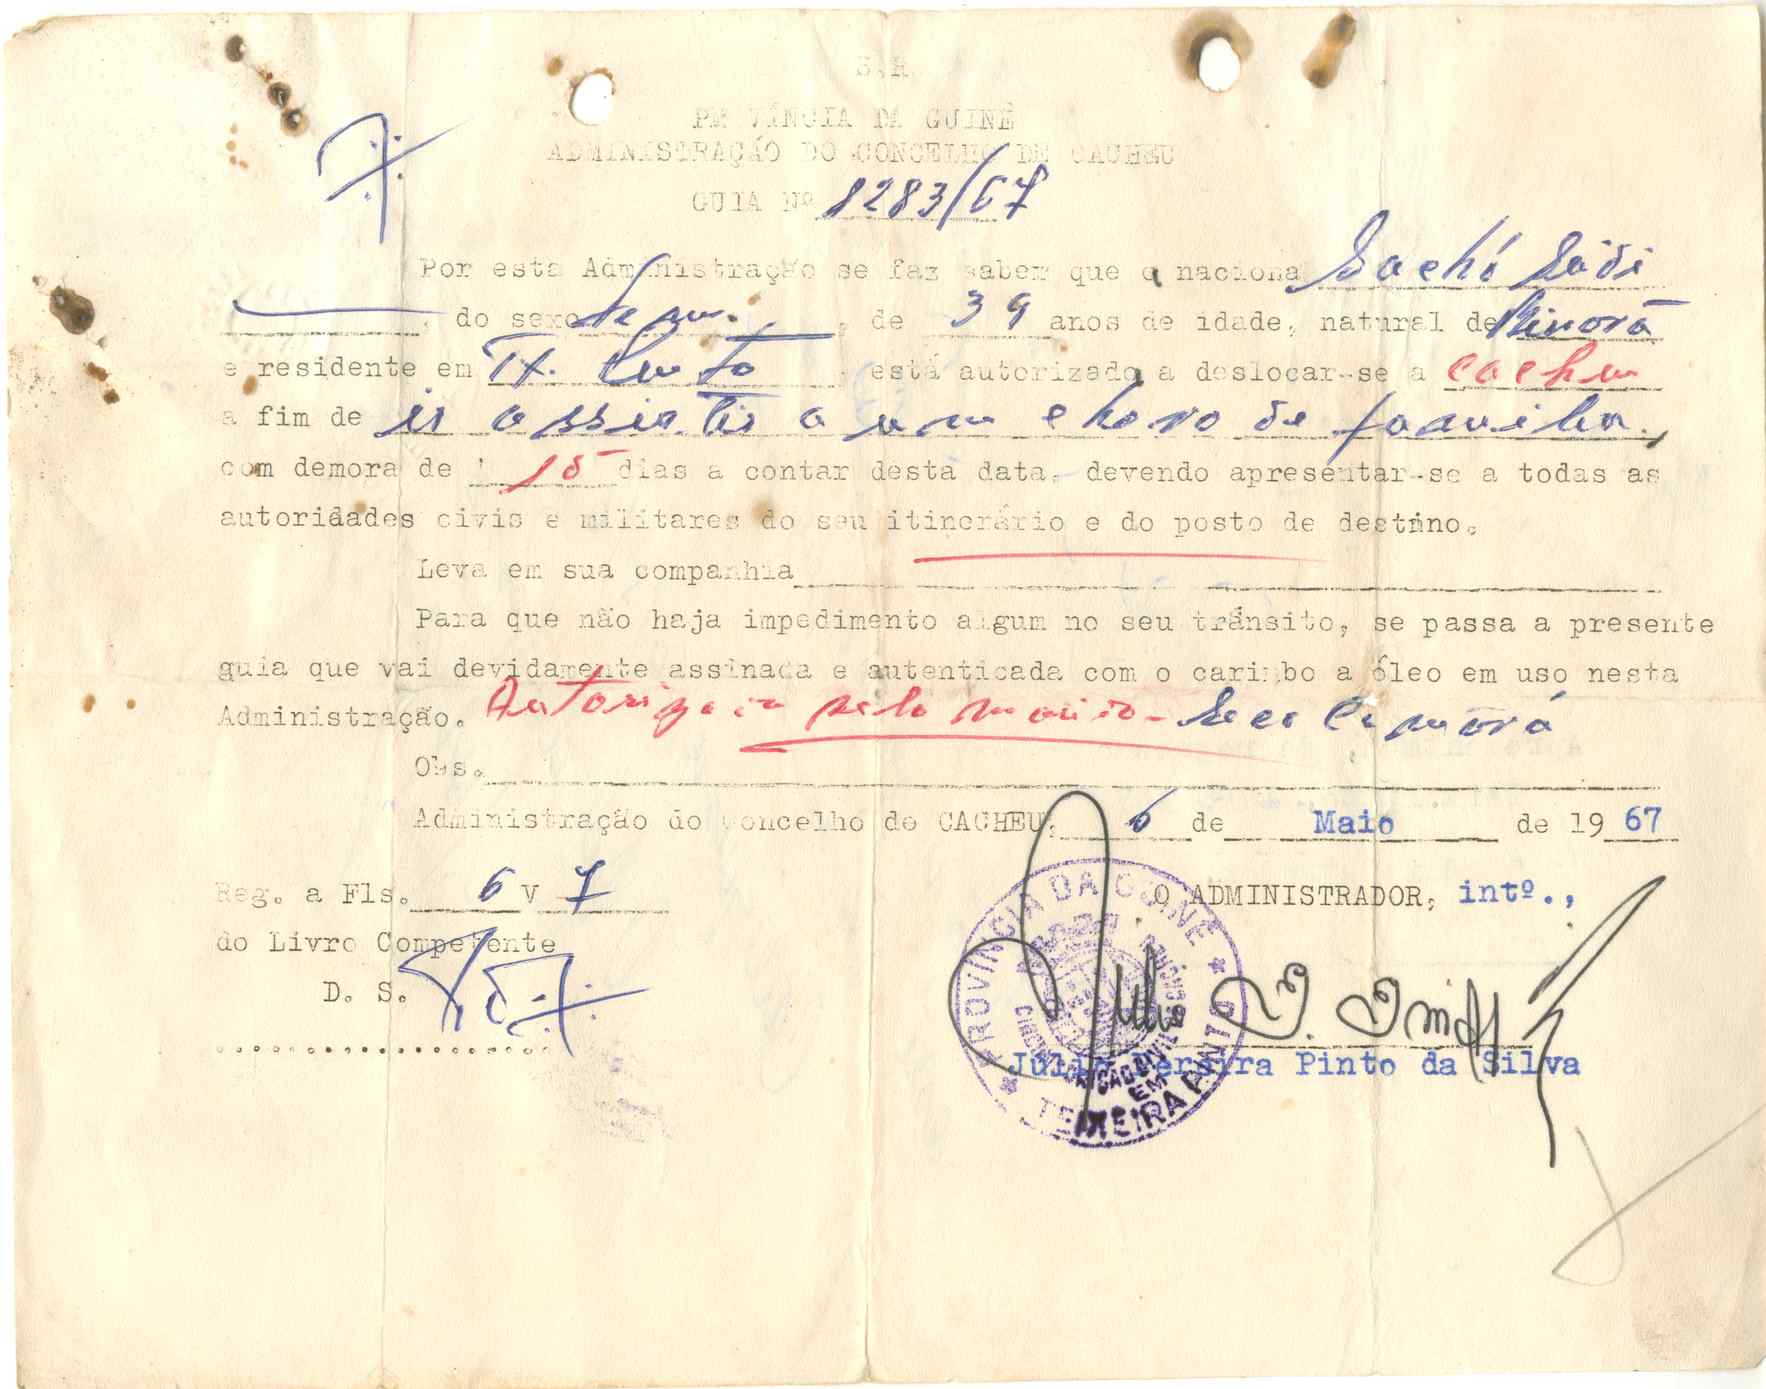 S.R
PROVÍNCIA DA GUINÉ
ADMINISTRAÇÃO DO CONCELHO DE CACHEU
GUIA Nº 1283/67
Por esta Administração se faz saber que a nacional Sachó Sádi
, do sexo fem. , de 39 anos de idade, natural de Binorá
e residente em Tx. Pinto , está autorizada a deslocar-se a Cacheu
a fim de ir assistir a um choro de família,
com demora de 15 dias a contar desta data, devendo apresentar-se a todas as
autoridades civis e militares do seu itinerário e do posto de destino.
Leva em sua companhia
Para que não haja impedimento algum no seu trânsito, se passa a presente
guia que vai devidamente assinada e autenticada com o carimbo a óleo em uso nesta
Administração. Autorizada pelo marido -
Obs.
Administração do Concelho de CACHEU, 6 de Maio de 1967
Reg. a Fls. 6 v 7
O ADMINISTRADOR, intº.,
do Livro Competente
D. S.
Júlio Pereira Pinto da Silva
PROVÍNCIA DA GUINÉ
TEIXEIRA PINTO